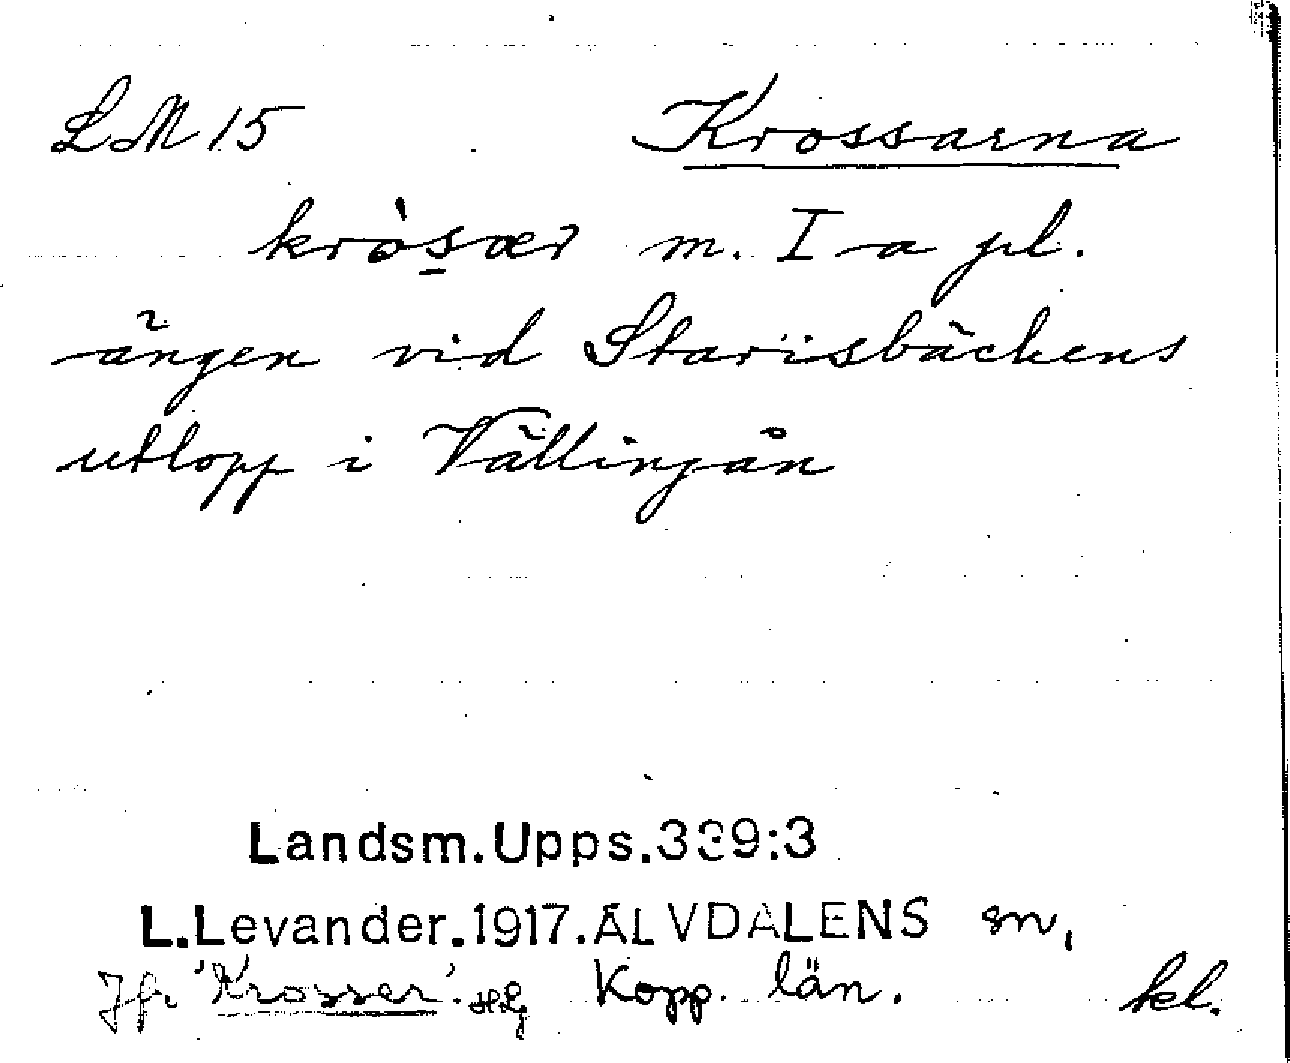 LM 15 Krossarna
kròsær m. I a pl.
ängen vid Starisbäckens
utlopp i Vällingån
Landsm.Upps.339:3
L.Levander.1917.ÄLVDALENS sn,
Jfr 'Krosser'. Kopp. län. kl.